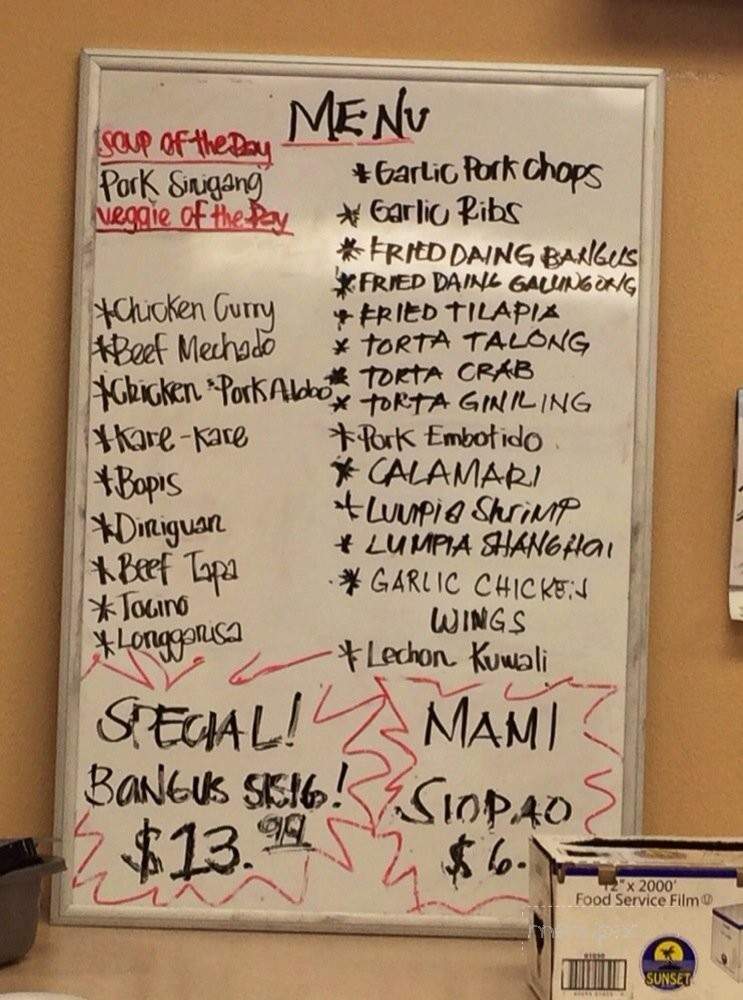 MENU
SOUP OF the Day
Pork Sinigang
Veggie of the Day
*Chicken Curry
*Beef Mechado
*Chicken & Pork Adobo
*Kare-Kare
*Bopis
*Diniguan
*Beef Tapa
*Tocino
*Longganisa
*Garlic Pork Chops
*Garlic Ribs
*FRIED DAING BANGUS
*FRIED DAING GALUNGONG
*FRIED TILAPIA
*TORTA TALONG
*TORTA CRAB
*TORTA GINILING
*Pork Embotido
*CALAMARI
*LUMPIA SHRIMP
*LUMPIA SHANGHAI
*GARLIC CHICKEN
WINGS
*Lechon Kuwali
SPECIAL!
BANGUS SISIG!
$13.99
MAMI
SIOPAO
$6.
12" x 2000'
Food Service Film
SUNSET